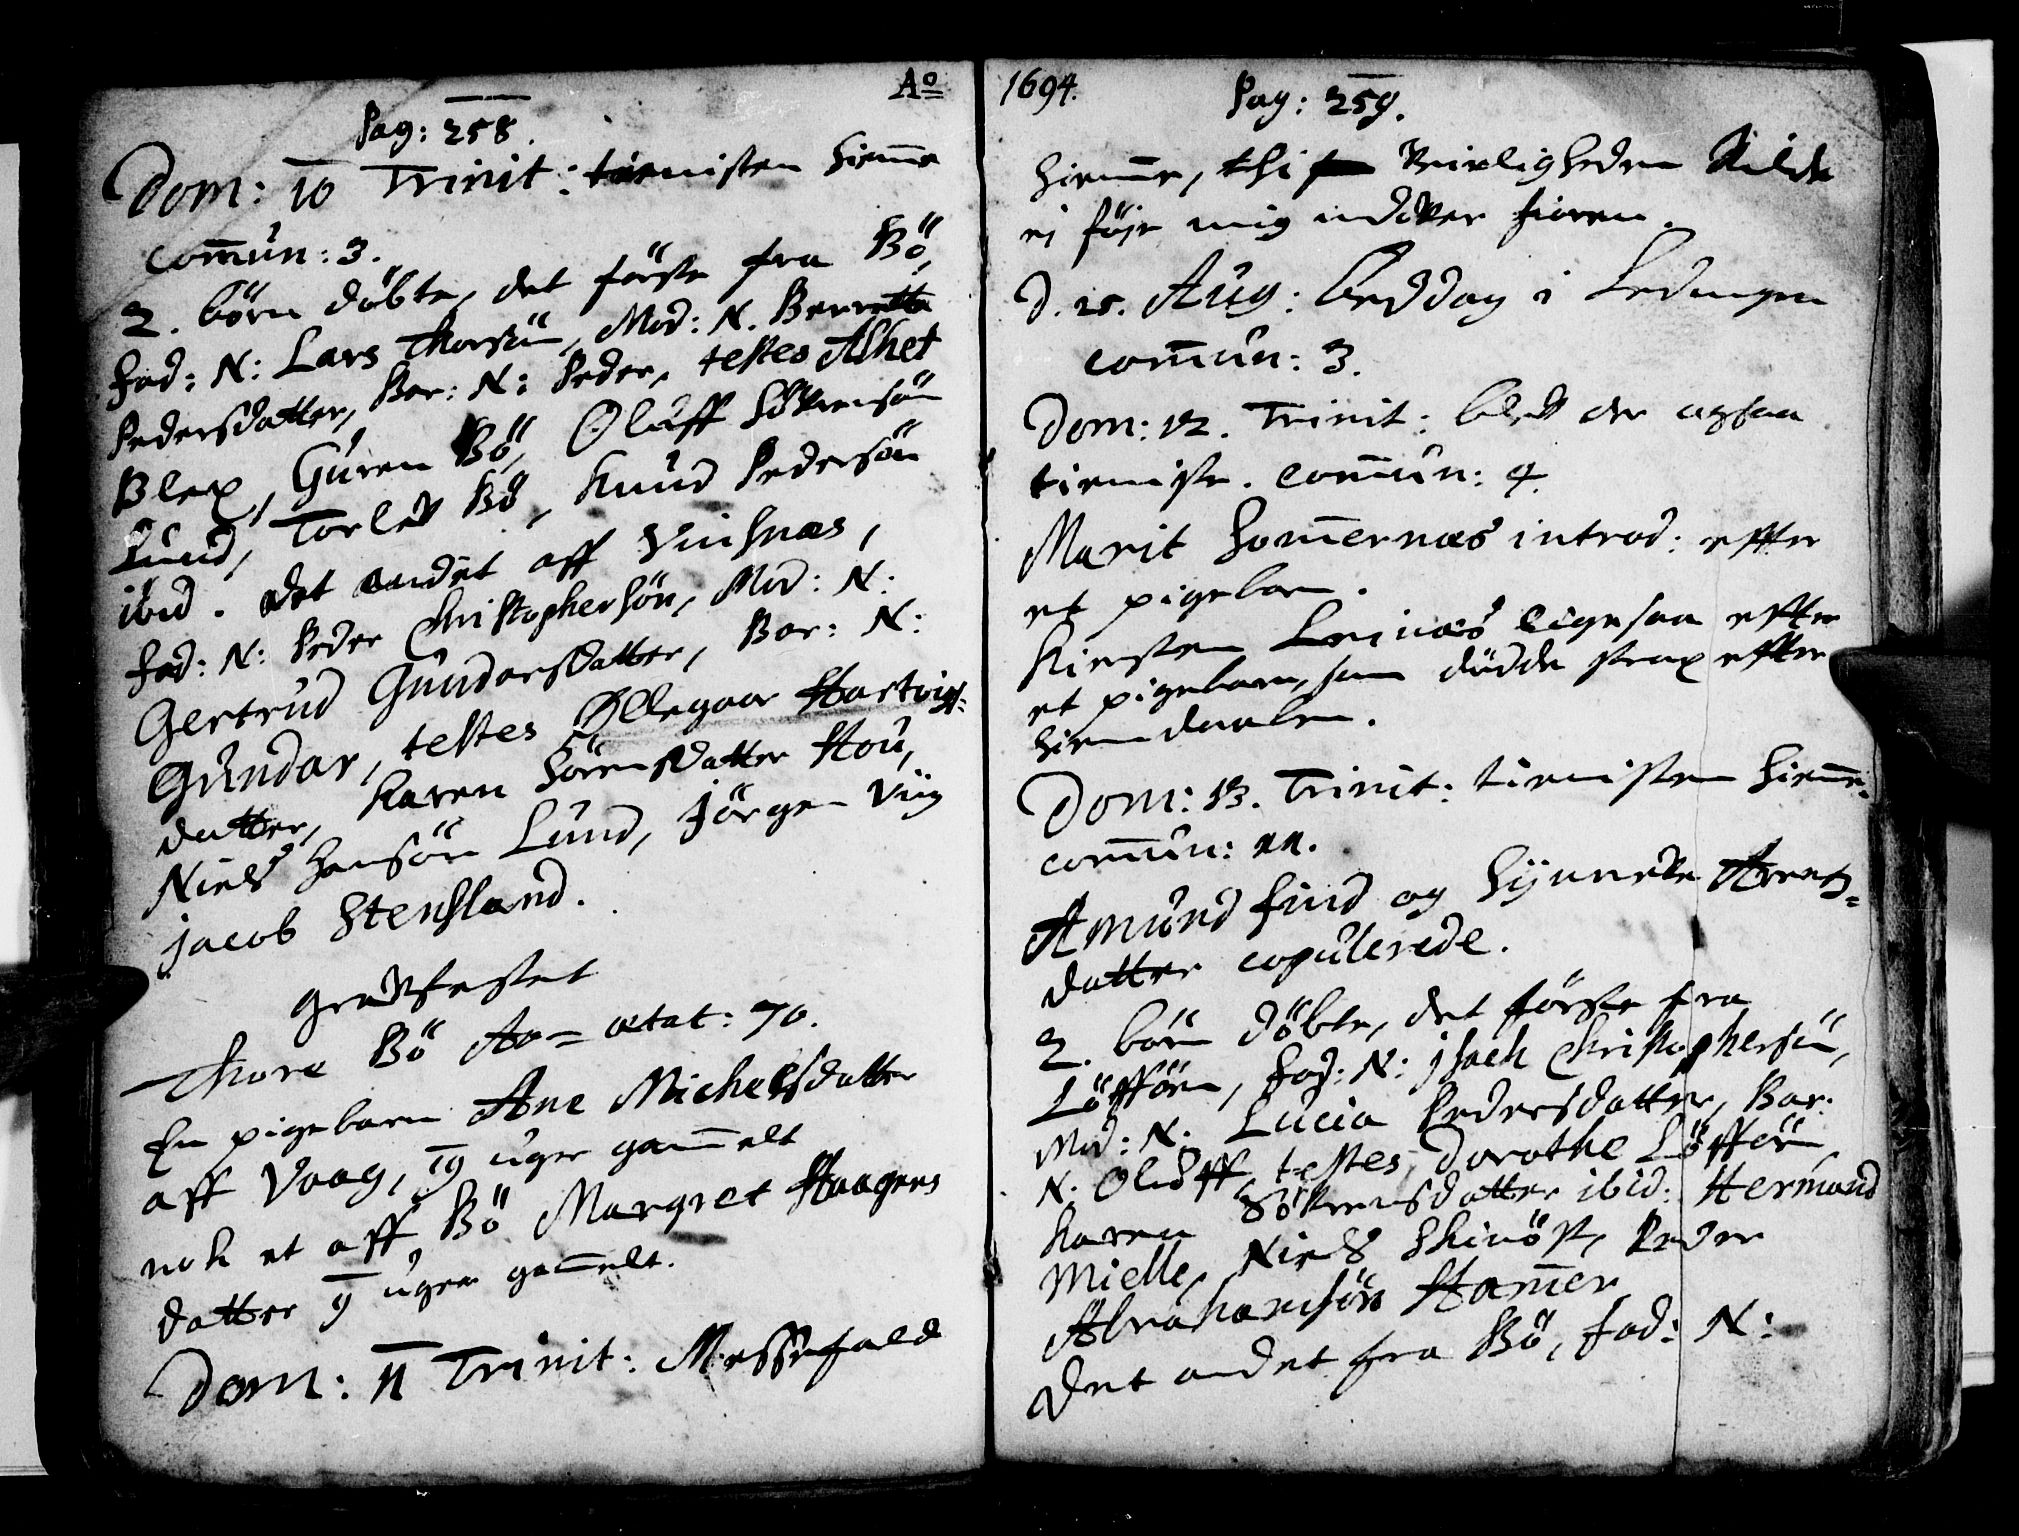 Aº
Pag: 258.
Dom: 10 Trinit: tienisten hiem̄e
com̄un: 3.
2. börn döbte, det förste fra Bö,
Fad: N: Lars Thorsön, Mod: N. Berrette
Pedersdatter, Bar: N: Peder, testes Alhet
Blex, Guren Bö, Oluff Söfrensön
Lund, Torlef Bö, Knud Pedersön
ibid. det andet aff Vinsnæs,
Fad: N: Peder Christophersön, Mod: N:
Gertrud Gundarsdatter, Bar: N:
Gundar, testes Ellegaar Hartvigs-
datter, Karen Sörensdatter Hou,
Niels Hansön Lund, Jörgen Viig
Jacob Stensland.
Graffestet
Thore Bö Ao= ætat: 70.
En pigebarn Ane Michelsdatter
aff Vaag, 19 uger gam̄elt
nok et aff Bö Margret Haagens
datter 9 uger gam̄elt.
Dom: 11 Trinit: Messefald
1694.
Pag: 259.
hiem̄e, thi Veirligheden Vilde
ej föje mig indofver fioren.
d. 25. Aug: Beddag i Ledingen
com̄un: 3.
Dom: 12. Trinit: blef der ogsaa
tieniste. com̄un: 4.
Marit Hom̄ernæs introd: effter
et pigebarn.
Kiersten Leinæs ligesaa effter
et pigebarn, som dödde strax effter
hiemdaaben.
Dom: 13. Trinit: tienisten hiem̄e.
com̄un: 11.
Amund Find og Synnefve Arents-
datter copulerede.
2. börn döbte, det förste fra
Löffön, Fad: N: Isach Christophersön,
Mod: N. Lucia Pedersdatter, Bar:
N. Oluff, testes, Dorothe Löffön
Karen Söfrensdatter ibid: Herman̄d
Mielle, Niels Skinöst, Peder
Abrahamsön Ham̄er
Det andet fra Bö, Fad: N: